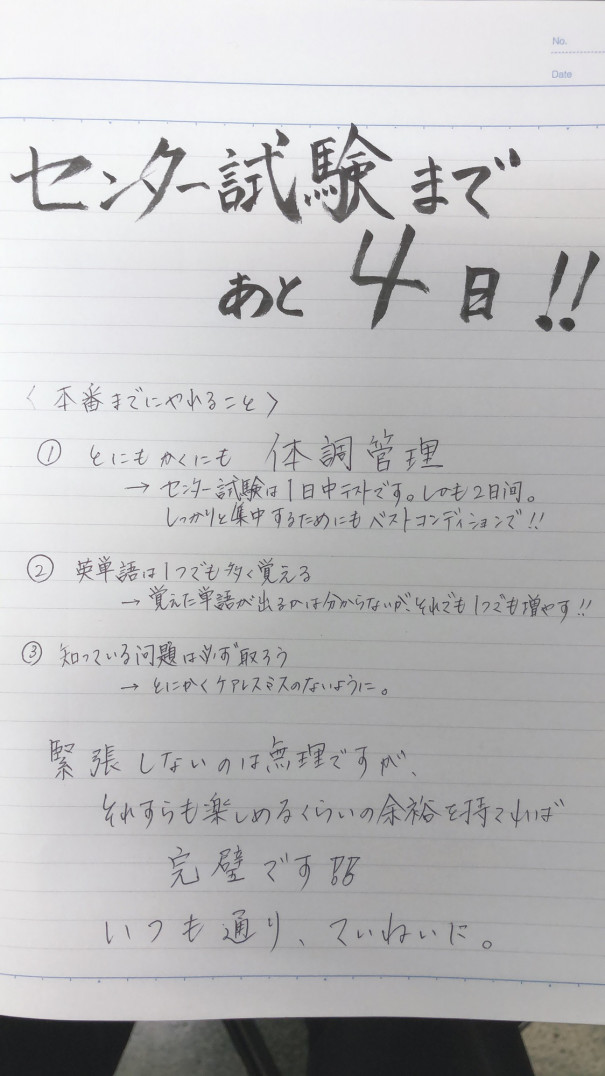 No.
Date
センター試験まで
あと4日!!
〈本番までにやれること〉
① とにもかくにも 体調管理
→ センター試験は1日中テストです。しかも2日間。
しっかりと集中するためにもベストコンディションで!!
② 英単語は1つでも多く覚える
→ 覚えた単語が出るかは分からないが、それでも1つでも増やす!!
③ 知っている問題は必ず取ろう
→ とにかくケアレスミスのないように。
緊張しないのは無理ですが、
それすらも楽しめるくらいの余裕を持てれば
完璧です
いつも通り、ていねいに。